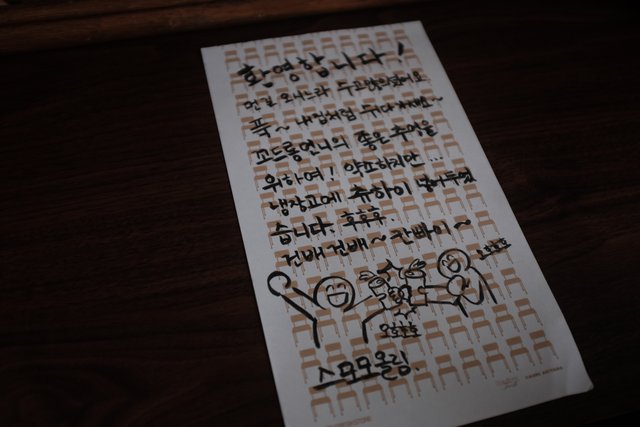 환영합니다!
먼길 오시느라 수고많으셨어요
푹~ 내집처럼 쉬다가세요~
코드롱언니의 좋은 추억을
위하여! 약소하지만 ...
냉장고에 츄하이 넣어두었
습니다. 후후후
건배 건배~ 칸빠이~
오호호호
스모모올림.